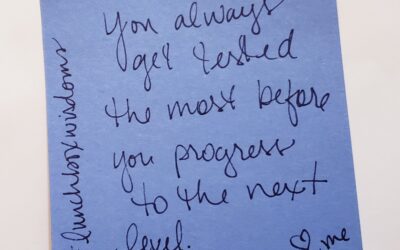 You always
get tested
the most before
you progress
to the next
level.
♡ me
#lunchboxwisdoms